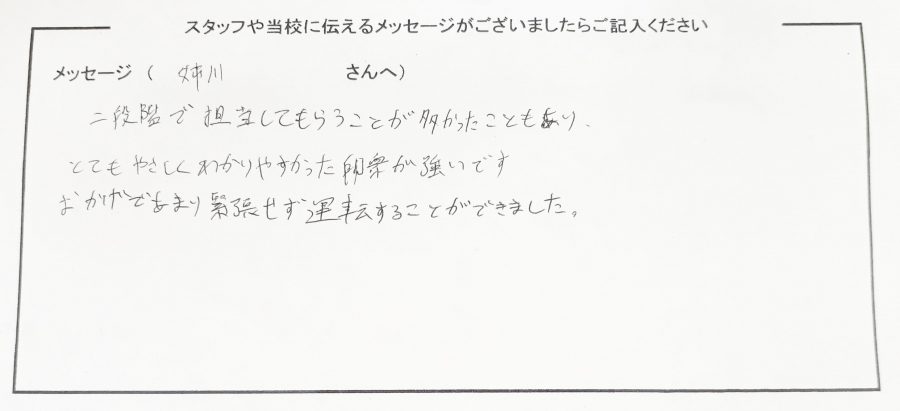 スタッフや当校に伝えるメッセージがございましたらご記入ください
メッセージ ( 姉川 さんへ)
二段階で担当してもらうことが多かったこともあり、
とてもやさしくわかりやすかった印象が強いです
おかげであまり緊張せず運転することができました。